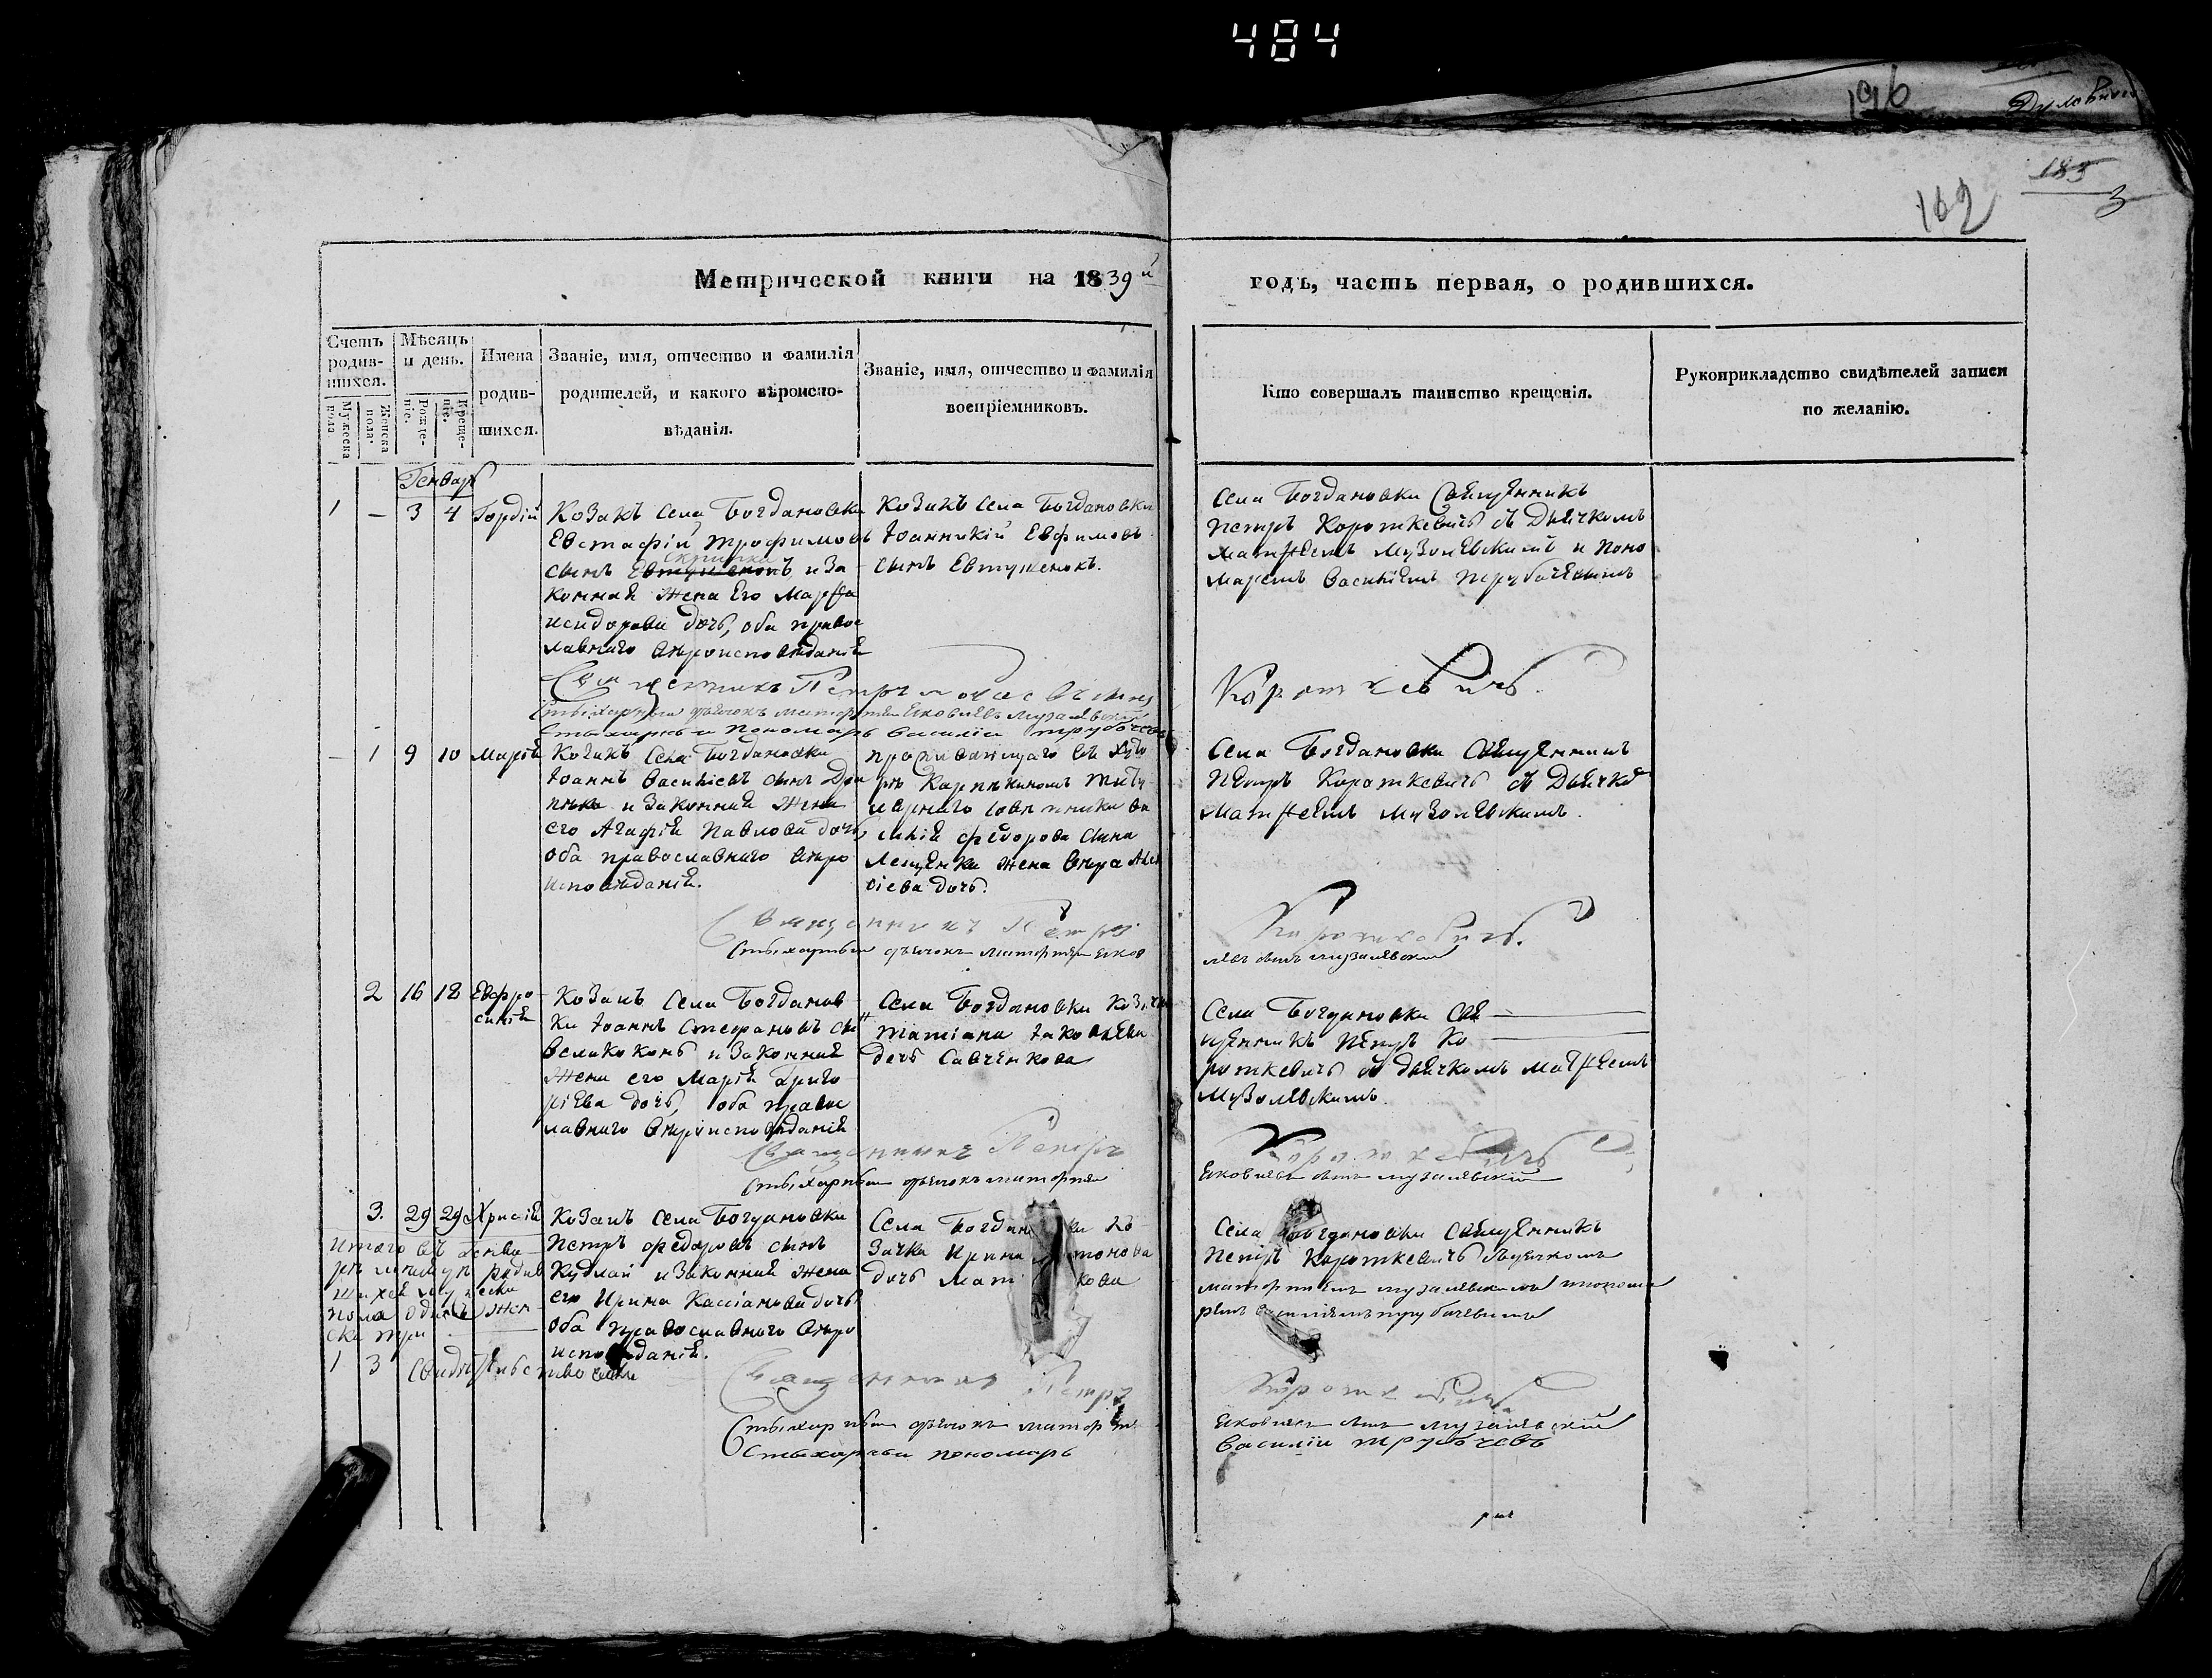 484
196
183
3
162
Метрической книги на 1839й
годъ, часть первая, о родившихся.
Счетъ родив-
шихся.
Мужеска
пола.
Женска
пола.
Мѣсяцъ
и день.
Рожде-
ніе.
Креще-
ніе.
Имена
родив-
шихся.
Званіе, имя, отчество и фамилія
родителей, и какого вѣроиспо-
вѣданія.
Званіе, имя, отчество и фамилія
воспріемниковъ.
Кто совершалъ таинство крещенія.
Рукоприкладство свидѣтелей записи
по желанію.
Генварь
1 — 3 4 Гордій
Козакъ села Богдановки
Евстафій Трофимовъ
скрипка
сынъ Евтушенокъ и за
конная жена его Марфа
исидорова дочь, оба правос
лавнаго вѣроисповѣданія
Козакъ села Богдановки
Іоанникій Евфимовъ
сынъ Евтушенокъ.
Села Богдановки Священникъ
Петръ Короткевичъ съ Дьячкомъ
Матѳеемъ Музолевскимъ и Поно
маремъ Василіемъ Трубачевымъ
Священникъ Петръ
Короткевичъ.
Стихарный дьячокъ Матфей Яковлевъ Музалевскій
Стихарный Пономарь Василій Трубочевъ
— 1 9 10 Марія
Козакъ Села Богдановки
Іоаннъ Васильевъ сынъ
и Законная Жена
его Агафія Павлова дочь
оба православнаго вѣро
исповѣданія.
проживающаго въ Хуто
рѣ Титу
лярнаго совѣтника Ва
силія Федорова сына
Лещенка жена Вѣра Але
сіева дочь.
Села Богдановки Священникъ
Петръ Короткевичъ съ Дьячко
Матѳеемъ Музолевскимъ.
Священникъ Петръ
Короткевичъ.
Стихарный дьячокъ Матфей Яков
левъ сынъ Музалевскій
2 16 18 Евфро
синія
Козакъ Села Богданов
ки Іоаннъ Стефановъ сы
Великоконь и Законная
Жена его Марія Григо
ріева дочь, оба правос
лавнаго вѣроисповѣданія
Села Богдановки Козачка
Татіана Іаковлева
дочь Савченкова
Села Богдановки Свя
щенникъ Петръ Ко
роткевичъ съ дьячкомъ Матѳеемъ
Музолевскимъ.
Священникъ Петръ
Короткевичъ
Стихарный дьячокъ Матфей
Яковлевъ сынъ Музалевскій
3. 29 29
Козакъ Села Богдановки
Петръ Федоровъ сынъ
Кудлай и Законная Жена
его Ирина Кассіанова дочь
оба Православнаго Вѣро
исповѣданія.
Села Ко
зачка Ирина
дочь
Села Богдановки Священникъ
Петръ Короткевичъ съ Дьячкомъ
Матфѣемъ Музалевскимъ и понома
ремъ Василіемъ Трубачевымъ
Итого въ Генва
рѣ родив
шихся мужеска
пола одинъ Жен
ска три
1 3
Священникъ Петръ
Короткевичъ
Стихарный дьячокъ Матфей
Яковлевъ сынъ Музалевскій
Стихарный пономарь
Василій Трубочевъ